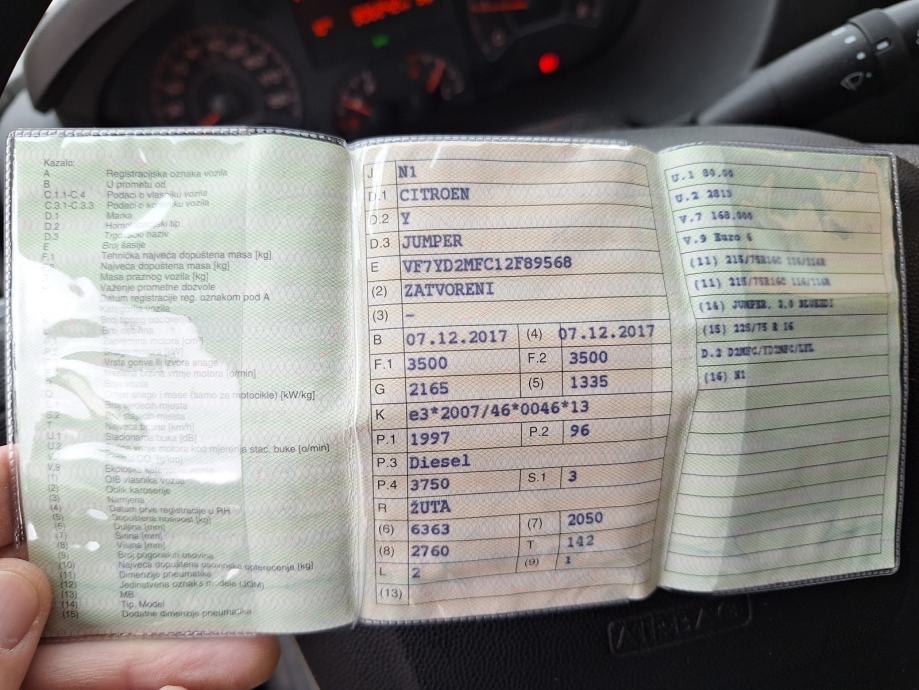 Kazalo:
A Registracijska oznaka vozila
B U prometu od
C.1.1-C.4 Podaci o vlasniku vozila
C.3.1-C.3.3 Podaci o vozila
D.1 Marka
D.2
D.3 naziv
E Broj šasije
F.1 Tehnička najveća dopuštena masa [kg]
Najveća dopuštena masa [kg]
Masa praznog vozila [kg]
Važenje prometne dozvole
Datum registracije reg. oznakom pod A
Vrsta goriva ili izvora snage
vrtnje motora [o/min]
snage i mase (samo za motocikle) [kW/kg]
Najveća brzina [km/h]
U.1 Stacionarna buka [dB]
U.2 vrtnje motora kod mjerenja stac. buke [o/min]
V.9 Ekološka
(1) OIB vlasnika vozila
(2) Oblik karoserije
(3) Namjena
(4) Datum prve registracije u RH
(5) Dopuštena nosivost [kg]
(6) Duljina [mm]
(7) Širina [mm]
(8) Visina [mm]
(9) Broj pogonskih osovina
(10) Najveće dopušteno osovinsko opterećenje [kg]
(11) Dimenzije pneumatika
(12) Jedinstvena oznaka modela (JOM)
(13) MB
(14) Tip, Model
(15) Dodatne dimenzije pneumatika
J N1
D.1 CITROEN
D.2 Y
D.3 JUMPER
E VF7YD2MFC12F89568
(2) ZATVORENI
(3) –
B 07.12.2017 (4) 07.12.2017
F.1 3500 F.2 3500
G 2165 (5) 1335
K e3*2007/46*0046*13
P.1 1997 P.2 96
P.3 Diesel
P.4 3750 S.1 3
R ŽUTA
(6) 6363 (7) 2050
(8) 2760 T 142
L 2 (9) 1
(13)
U.1 80.00
U.2 2813
V.7 168.000
V.9 Euro 6
(11) 215/75R16C 116/114R
(11) 215/75R16C 116/114R
(14) JUMPER, 2.0 BLUEHDI
(15) 225/75 R 16
(16) N1
AIRBAG